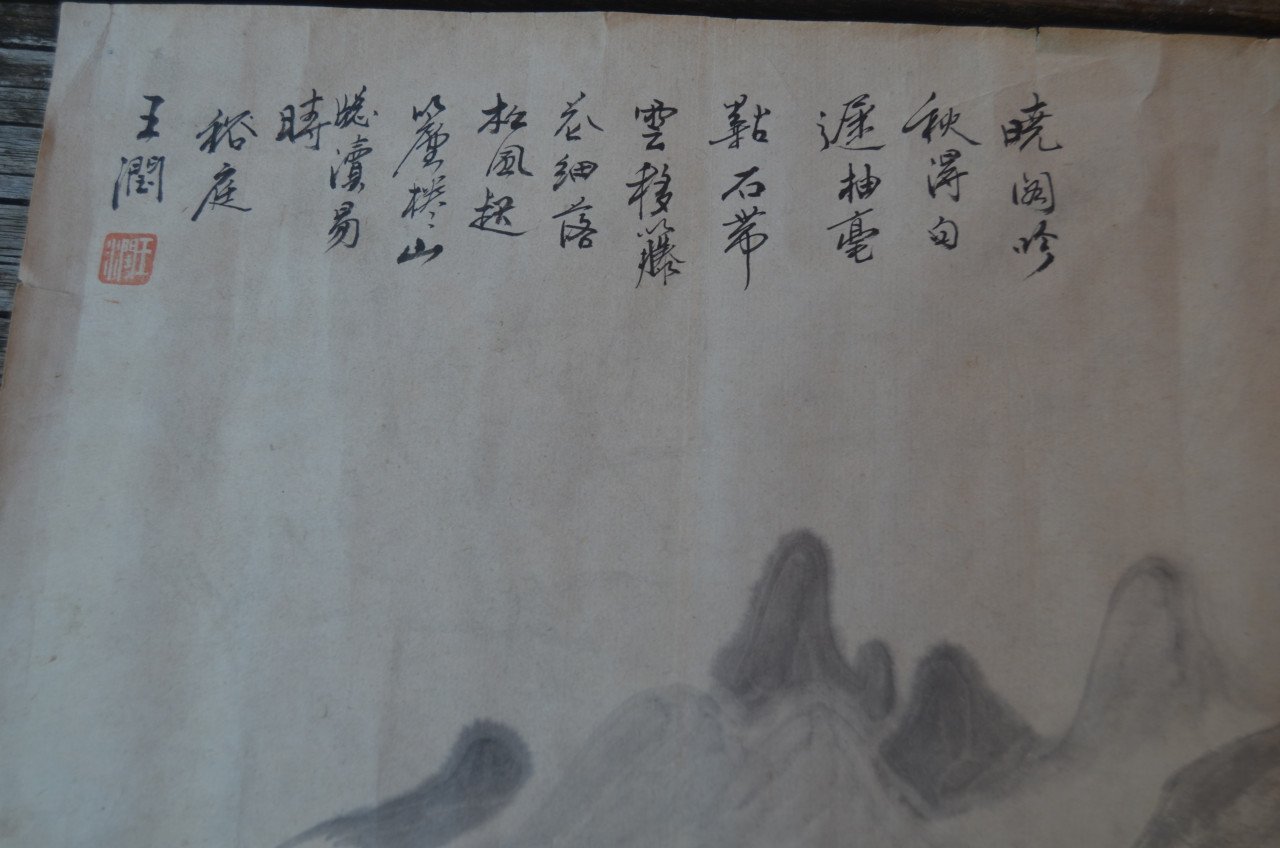 曉閣吟
秋得句
遲抽毫
黏石帶
雲移籐
花細落
松風起
簾捲山
聽讀易
時
裕庭
王潤
王潤